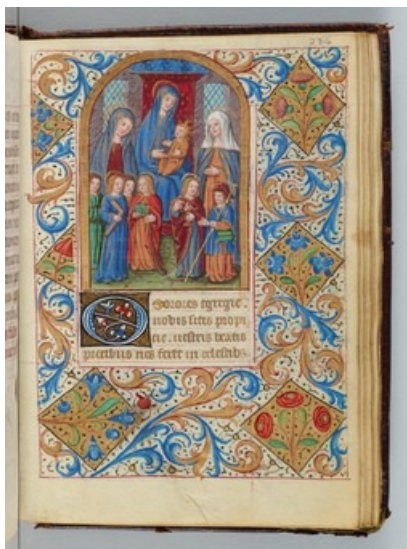 O Sorores egregie.
nobis sitis propi
cie. uestris beatis
precibus nos ferte in celestibꝰ